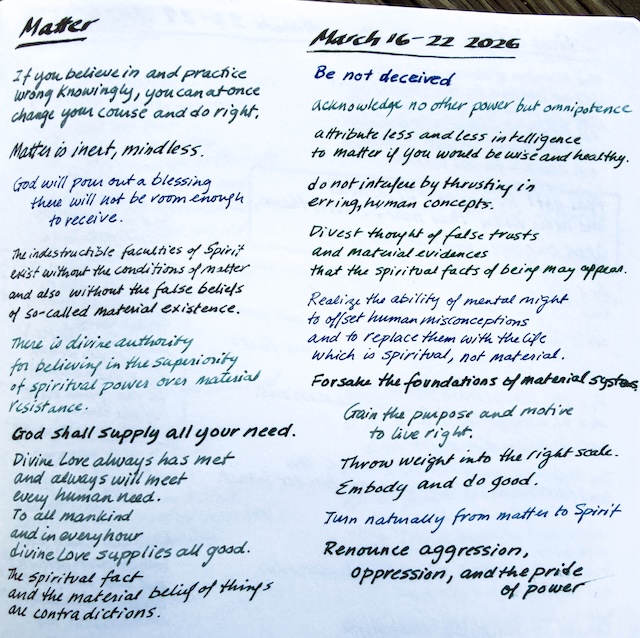 Matter
If you believe in and practice
wrong knowingly, you can at once
change your course and do right.
Matter is inert, mindless.
God will pour out a blessing
there will not be room enough
to receive.
The indestructible faculties of Spirit
exist without the conditions of matter
and also without the false beliefs
of so-called material existence.
There is divine authority
for believing in the superiority
of spiritual power over material
resistance.
God shall supply all your need.
Divine Love always has met
and always will meet
every human need.
To all mankind
and in every hour
divine Love supplies all good.
The spiritual fact
and the material belief of things
are contradictions.
March 16-22 2026
Be not deceived
acknowledge no other power but omnipotence
attribute less and less intelligence
to matter if you would be wise and healthy.
do not interfere by thrusting in
erring, human concepts.
Divest thought of false trusts
and material evidences
that the spiritual facts of being may appear.
Realize the ability of mental might
to offset human misconceptions
and to replace them with the life
which is spiritual, not material.
Forsake the foundations of material systems.
Gain the purpose and motive
to live right.
Throw weight into the right scale.
Embody and do good.
Turn naturally from matter to Spirit
Renounce aggression,
oppression, and the pride
of power